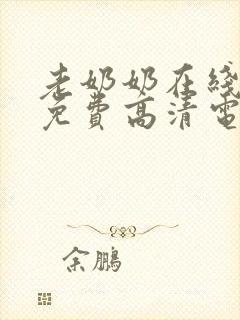 老奶奶在线
免费高清电
余鹏